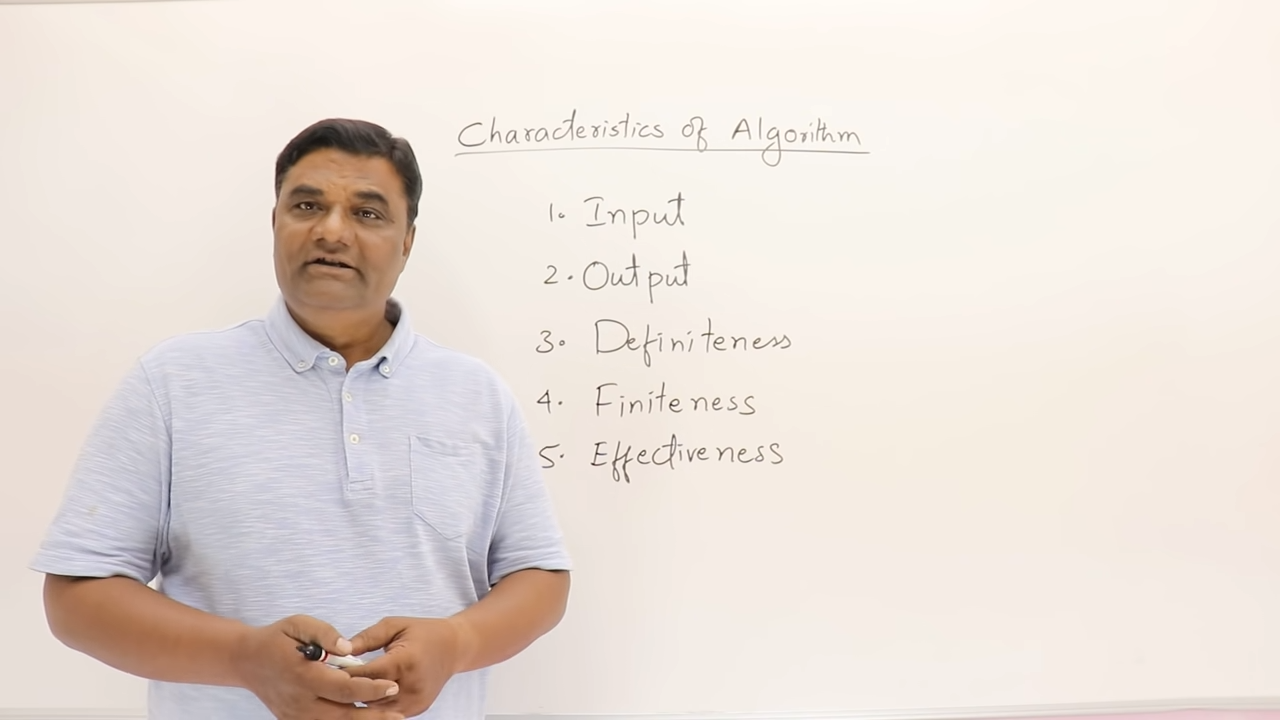 Characteristics of Algorithm
1. Input
2. Output
3. Definiteness
4. Finiteness
5. Effectiveness